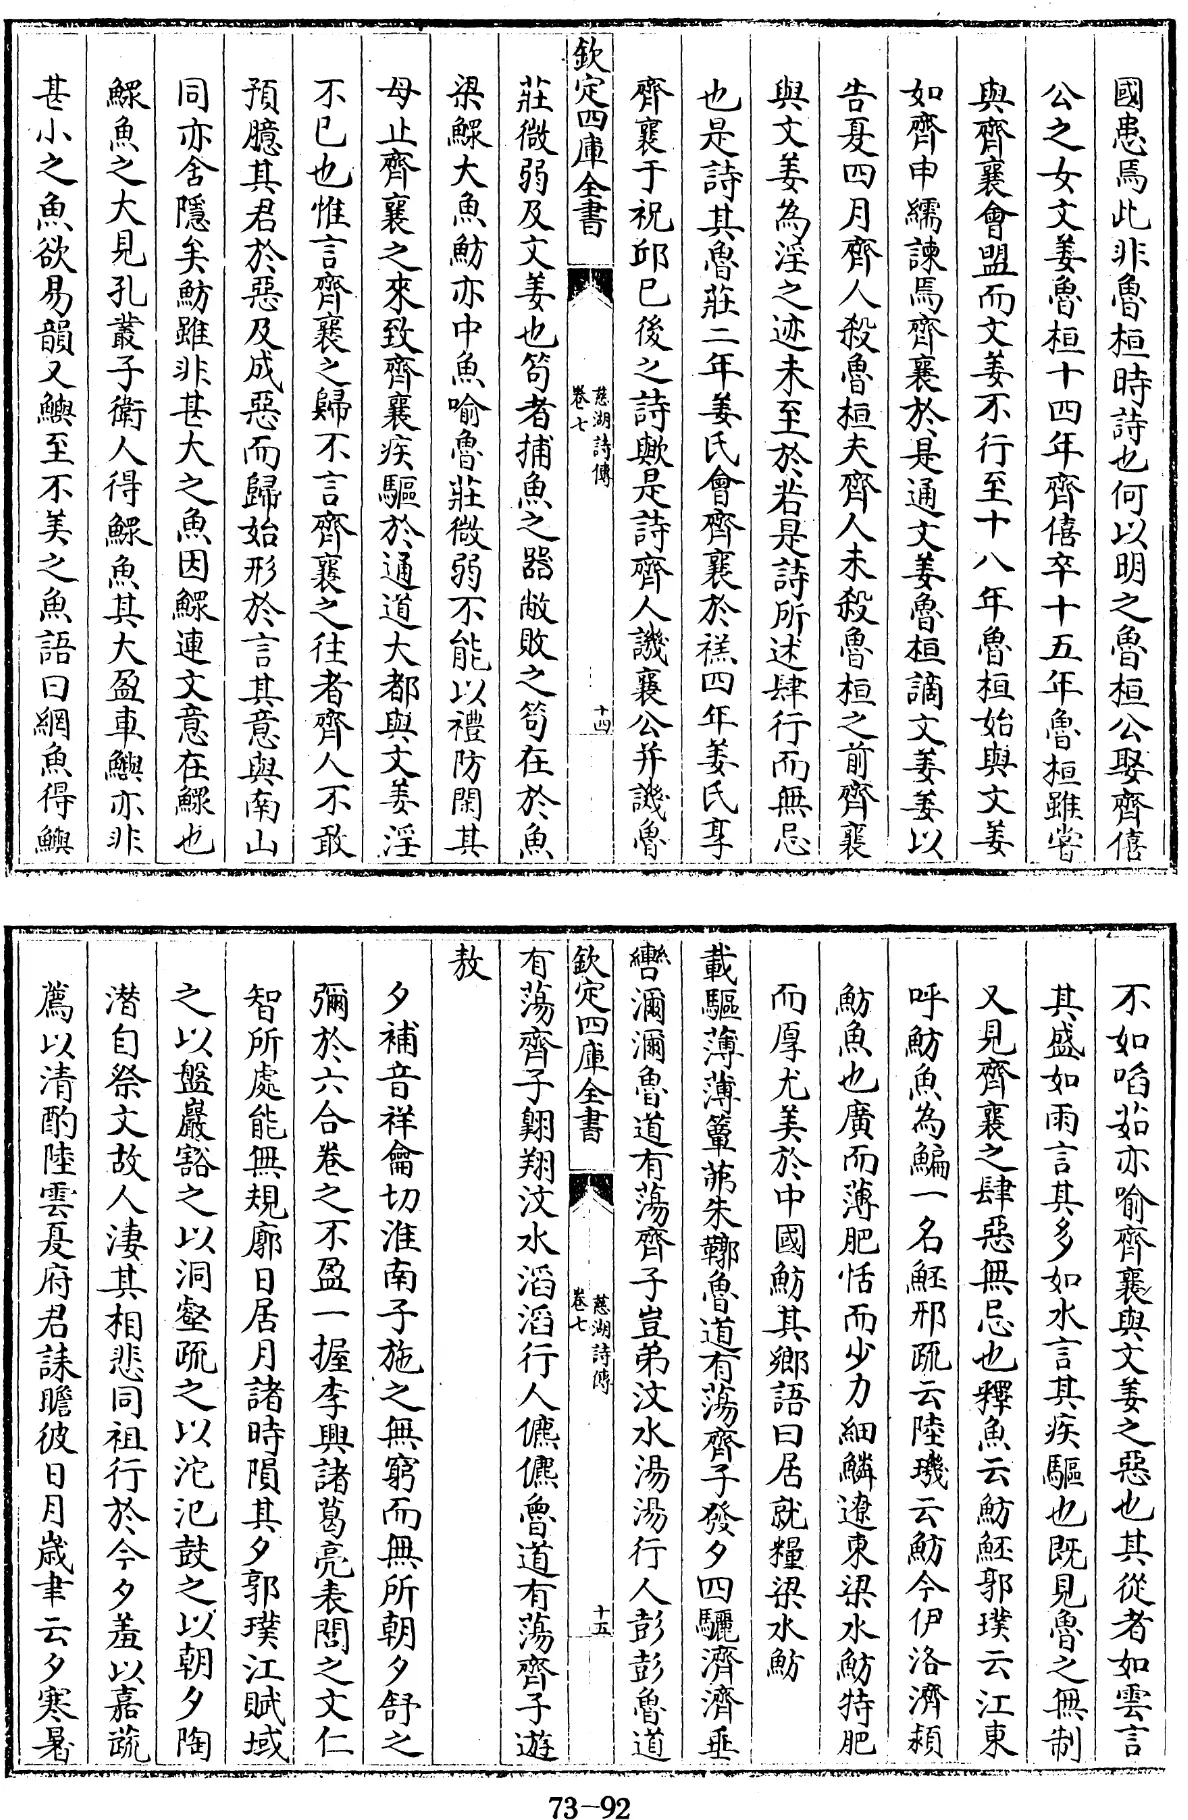 國患焉此非魯桓時詩也何以明之魯桓公娶齊僖
公之女文姜魯桓十四年齊僖卒十五年魯桓雖嘗
與齊襄會盟而文姜不行至十八年魯桓始與文姜
如齊申繻諫焉齊襄於是通文姜魯桓謫文姜姜以
告夏四月齊人殺魯桓夫齊人未殺魯桓之前齊襄
與文姜為淫之迹未至於若是詩所述肆行而無忌
也是詩其魯莊二年姜氏會齊襄於禚四年姜氏享
齊襄于祝邱已後之詩歟是詩齊人譏襄公并譏魯
欽定四庫全書
慈湖詩傳
卷七
十四
莊微弱及文姜也笱者捕魚之器敝敗之笱在於魚
梁鰥大魚魴亦中魚喻魯莊微弱不能以禮防閑其
母止齊襄之來致齊襄疾驅於通道大都與文姜淫
不已也惟言齊襄之歸不言齊襄之往者齊人不敢
預臆其君於惡及成惡而歸始形於言其意與南山
同亦含隱矣魴雖非甚大之魚因鰥連文意在鰥也
鰥魚之大見孔叢子衛人得鰥魚其大盈車鱮亦非
甚小之魚欲易韻又鱮至不美之魚語曰網魚得鱮
不如啗茹亦喻齊襄與文姜之惡也其從者如雲言
其盛如雨言其多如水言其疾驅也既見魯之無制
又見齊襄之肆惡無忌也釋魚云魴魾郭璞云江東
呼魴魚為鯿一名魾邢疏云陸璣云魴今伊洛濟潁
魴魚也廣而薄肥恬而少力細鱗遼東梁水魴特肥
而厚尤美於中國魴其鄉語曰居就糧梁水魴
載驅薄薄簟茀朱鞹魯道有蕩齊子發夕四驪濟濟垂
轡瀰瀰魯道有蕩齊子豈弟汶水湯湯行人彭彭魯道
欽定四庫全書
慈湖詩傳
卷七
十五
有蕩齊子翺翔汶水滔滔行人儦儦魯道有蕩齊子遊
敖
夕補音祥龠切淮南子施之無窮而無所朝夕舒之
彌於六合卷之不盈一握李興諸葛亮表閭之文仁
智所處能無規廓日居月諸時隕其夕郭璞江賦域
之以盤巖豁之以洞壑疏之以沱汜鼓之以朝夕陶
潛自祭文故人淒其相悲同祖行於今夕羞以嘉蔬
薦以清酌陸雲夏府君誄瞻彼日月歲聿云夕寒暑
73-92